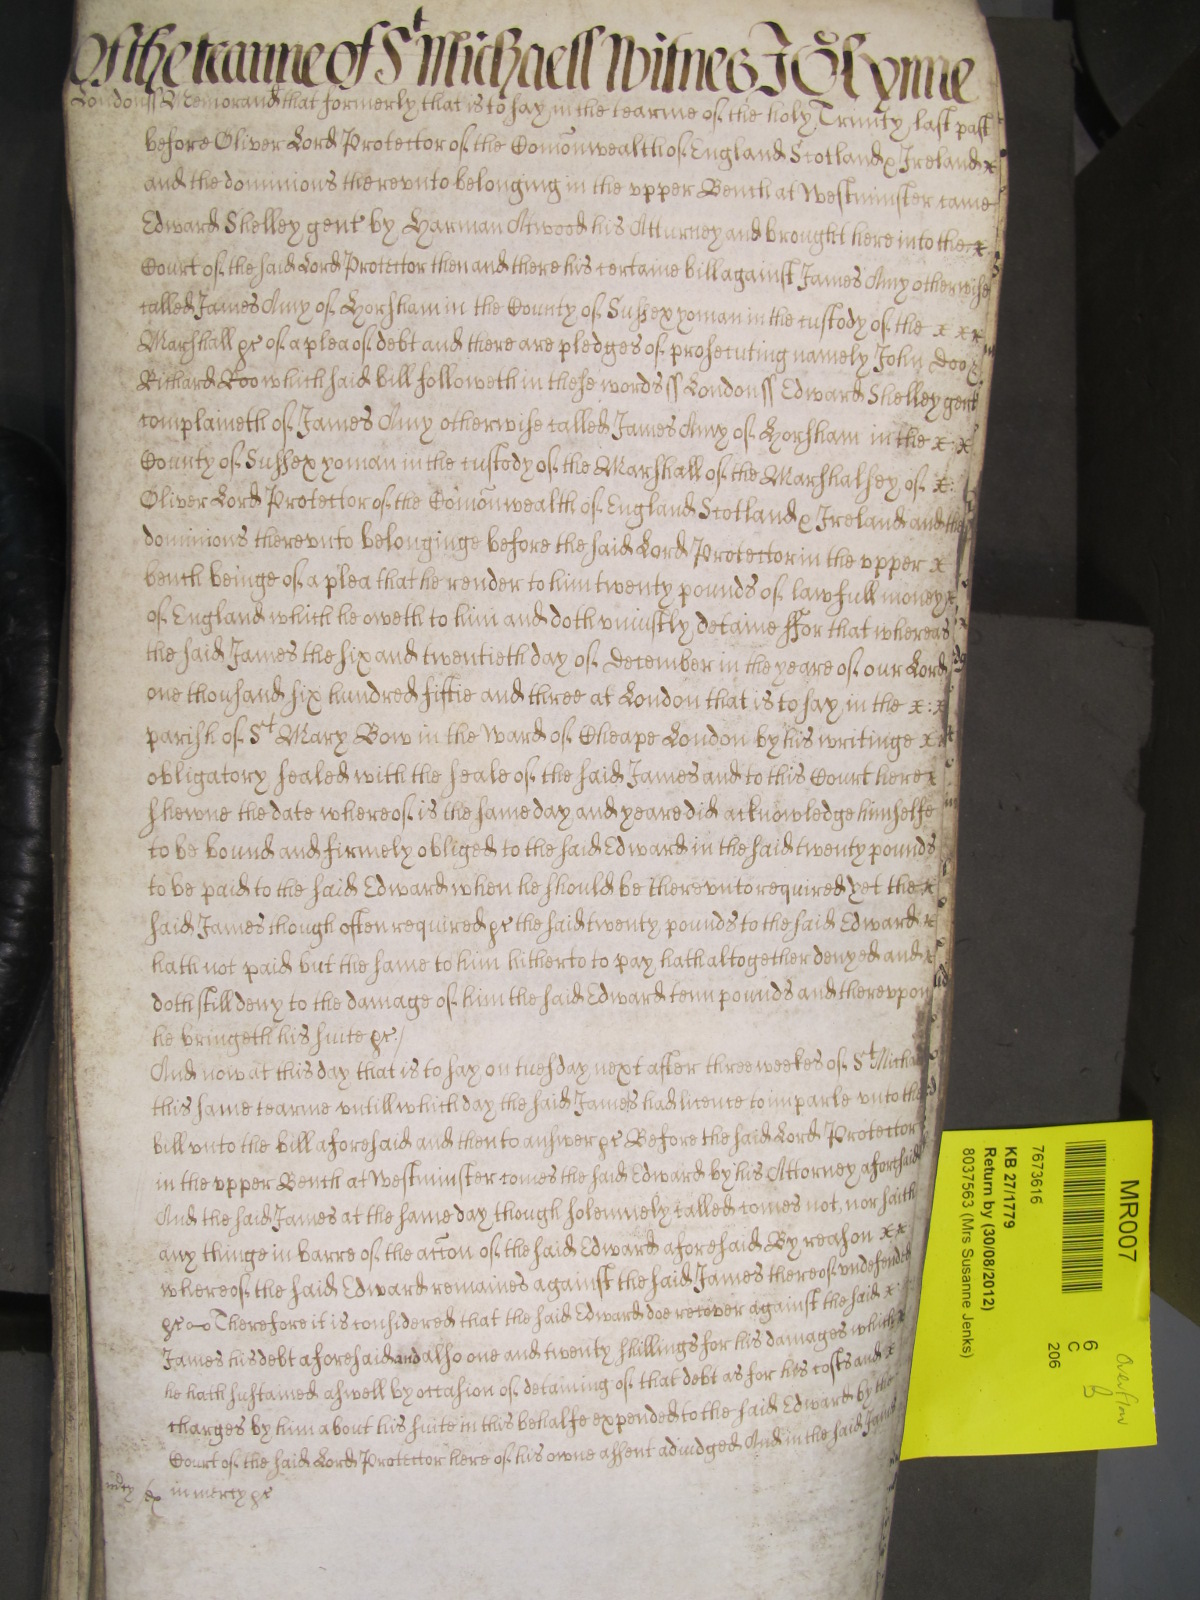 Of the tearme of St Michaell Witnes J Glynne
London ss Memorand that formerly that is to say in the tearme of the holy Trinity last past
before Oliver Lord Protector of the Comonwealth of England Scotland & Ireland x
and the dominions therevnto belonging in the vpper Bench at Westminster came
Edward Shelley gent by Harman Atwood his Atturney and brought here into the x
Court of the said Lord Protector then and there his certaine bill against James Amy otherwise
called James Amy of Horsham in the County of Sussex yoman in the custody of the x x x
Marshall &c of a plea of debt and there are pledges of prosecuting namely John Doo &
Richard Roo which said bill followeth in these words ss London ss Edward Shelley gent
complaineth of James Amy otherwise called James Amy of Horsham in the x : x
County of Sussex yoman in the custody of the Marshall of the Marshalsey of x :
Oliver Lord Protector of the Comonwealth of England Scotland & Ireland and the
dominions therevnto belonginge before the said Lord Protector in the vpper x
bench beinge of a plea that he render to him twenty pounds of lawfull money x
of England which he oweth to him and doth vniustly detaine ffor that whereas
the said James the six and twentieth day of December in the yeare of our Lord
one thousand six hundred fiftie and three at London that is to say in the x : x
parish of St Mary Bow in the Ward of Cheape London by his writinge x x
obligatory sealed with the seale of the said James and to this Court here x
shewne the date whereof is the same day and yeare did acknowledge himselfe
to be bound and firmely obliged to the said Edward in the said twenty pounds
to be paid to the said Edward when he should be therevnto required yet the x
said James though often required &c the said twenty pounds to the said Edward x
hath not paid but the same to him hitherto to pay hath altogether denyed and x
doth still deny to the damage of him the said Edward tenn pounds and therevpon
he bringeth his suite &c /
And now at this day that is to say on tuesday next after three weekes of St Micha
this same tearme vntill which day the said James had licence to imparle vnto the
bill vnto the bill aforesaid and then to answer &c Before the said Lord Protector
in the vpper Bench at Westminster comes the said Edward by his Attorney aforesaid
And the said James at the same day though solemnely called comes not, nor saith
any thinge in barre of the accon of the said Edward aforesaid By reason x x
whereof the said Edward remaines against the said James thereof vndefended
&c Therefore it is considered that the said Edward doe recover against the said x
James his debt aforesaid and also one and twenty shillings for his damages which x
he hath sustained aswell by occasion of detaining of that debt as for his costs and x
charges by him about his suite in this behalfe expended to the said Edward by the
Court of the said Lord Protector here of his owne assent adiudged And in the said James
in mercy &c
MR007
7673616
KB 27/1779
Return by (30/08/2012)
8037563 (Mrs Susanne Jenks)
6
C
206
Overflow
B